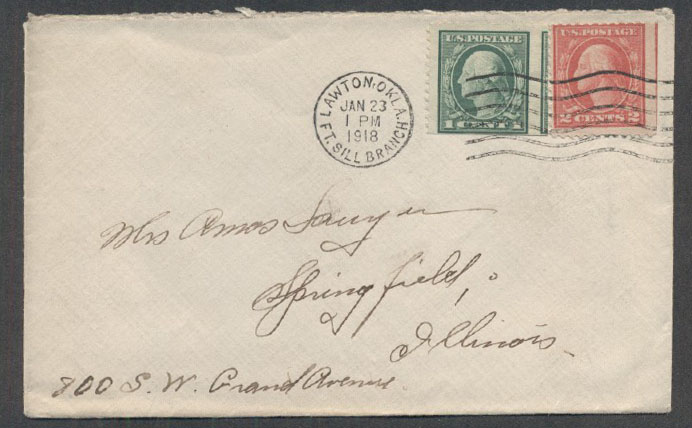 U.S. POSTAGE
1 CENT 1
U.S. POSTAGE
2 CENTS 2
LAWTON, OKLA.
JAN 23
1 PM
1918
FT. SILL BRANCH
Mrs Amos Sawyer
Springfield,
Illinois.
800 S. W. Grand Avenue